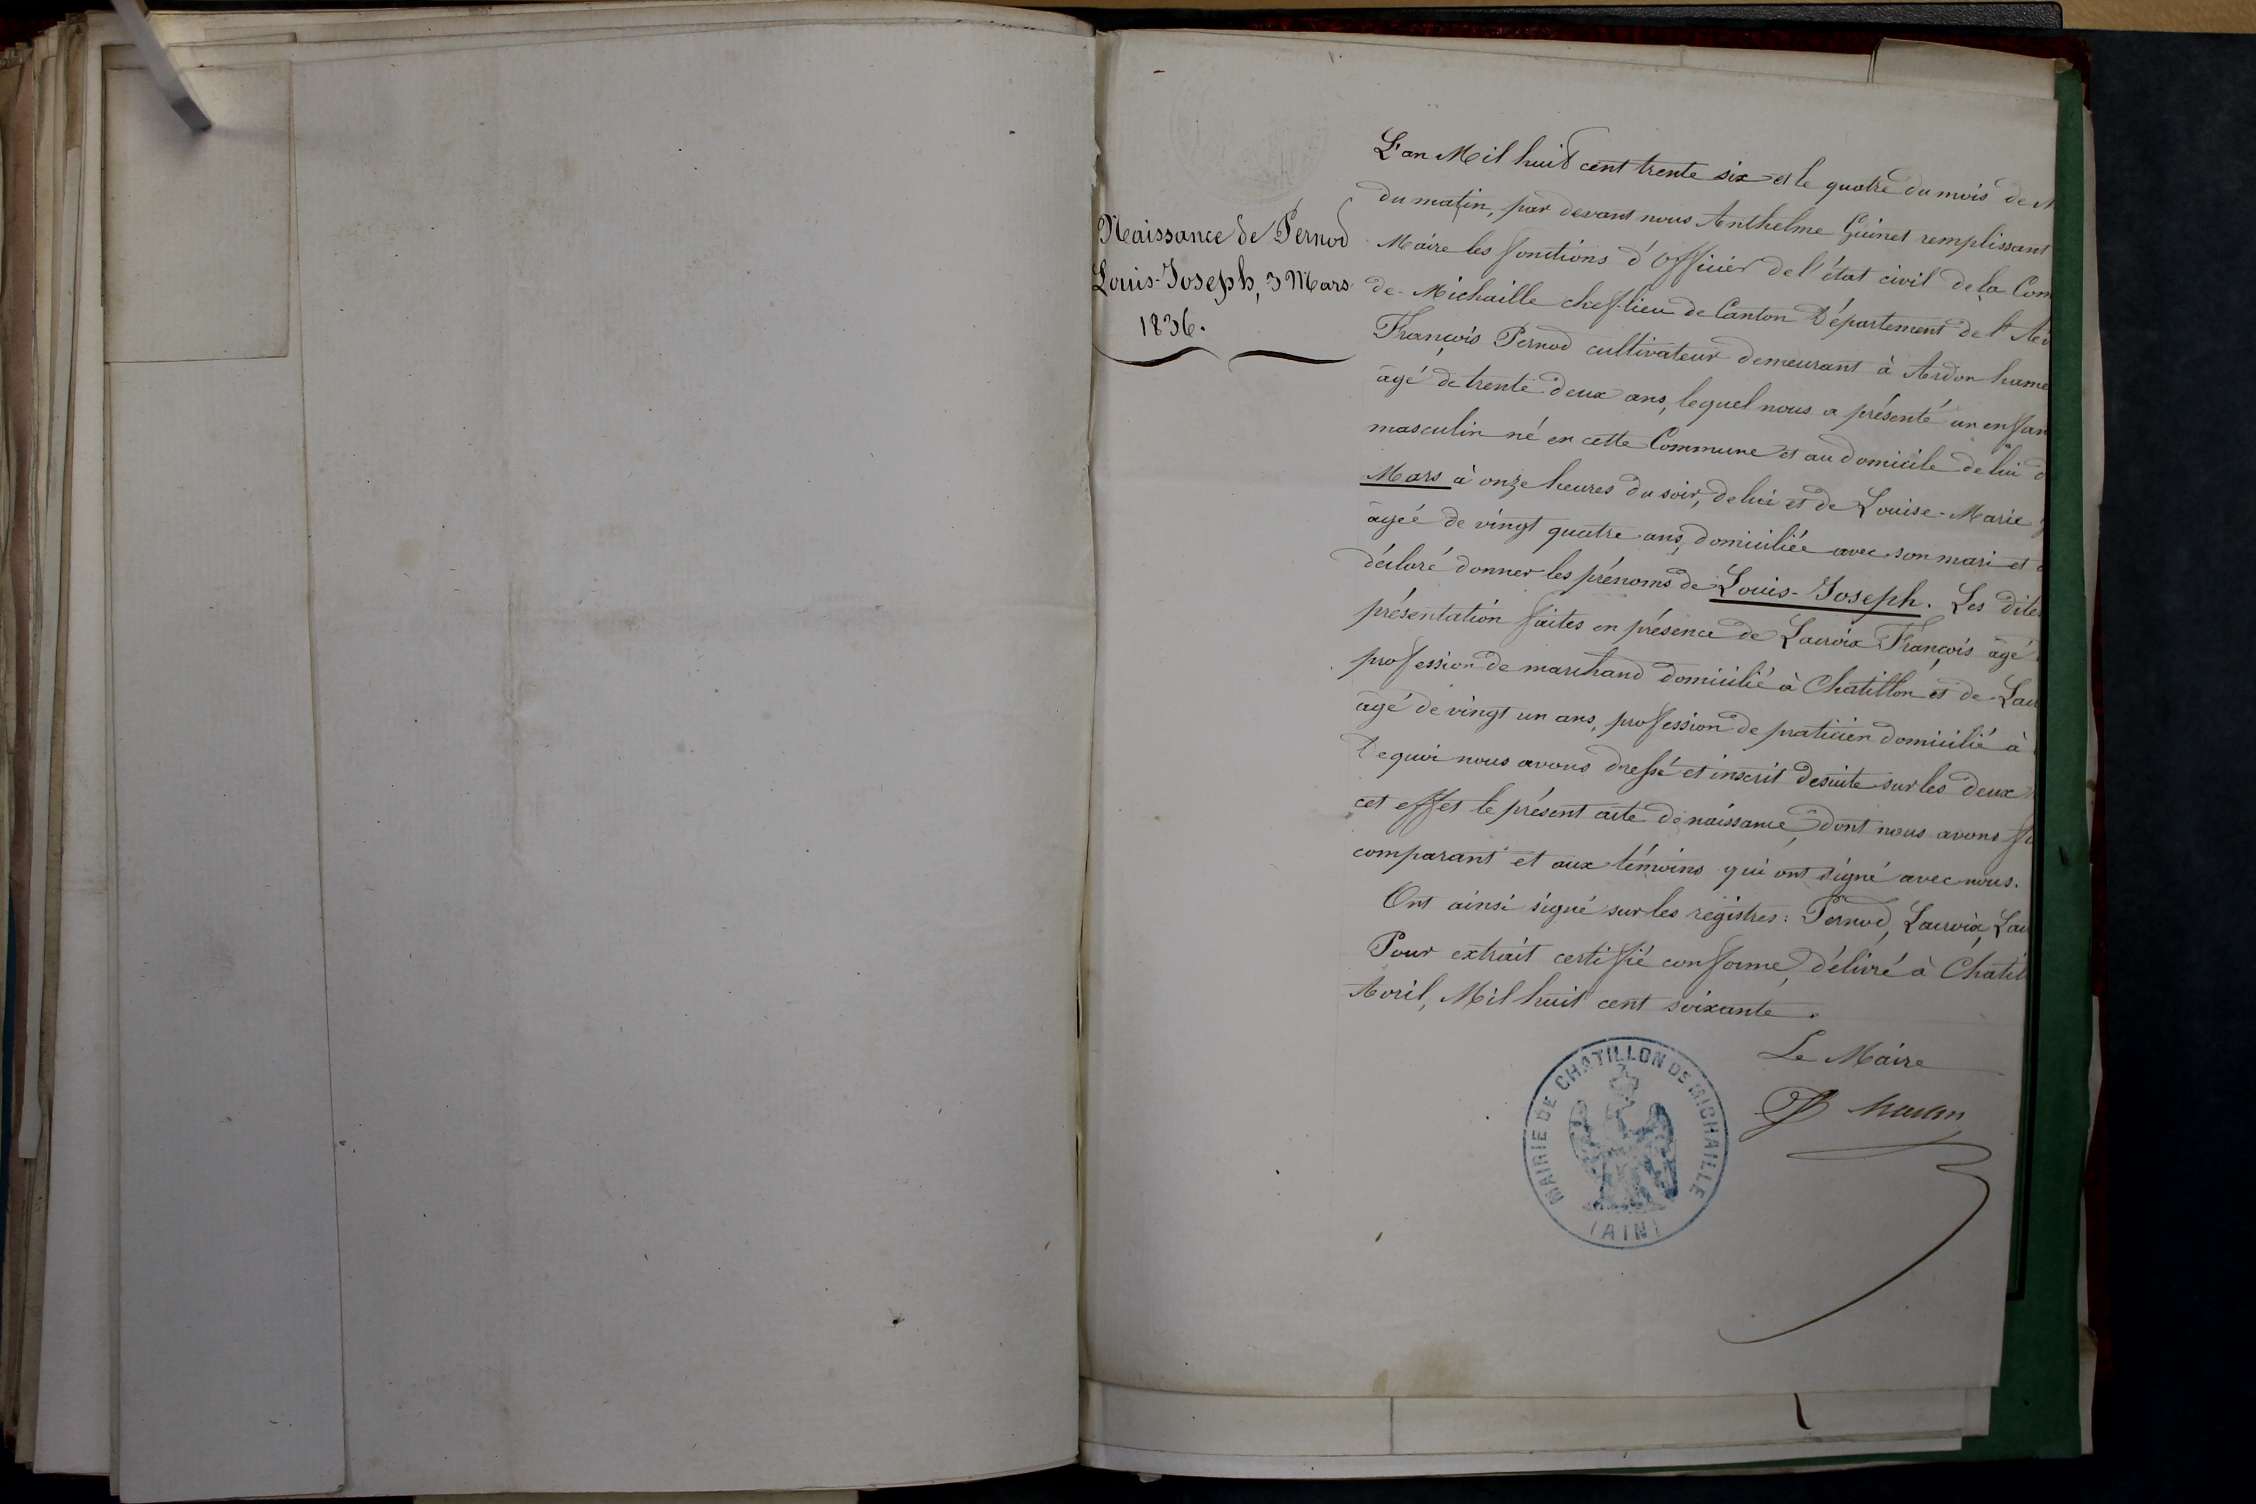 Naissance de Pernod
Louis-Joseph, 3 Mars
1836.
L'an Mil huit cent trente six et le quatre du mois de
du matin, par devant nous Anthelme Guinet remplissant
Maire les fonctions d'Officier de l'état civil de la Com
de Michaille chef-lieu de Canton Département de l'
François Pernod cultivateur demeurant à Ardon hame
âgé de trente deux ans, lequel nous a présenté un enfan
masculin né en cette Commune et au domicile de lui d
Mars à onze heures du soir, de lui et de Louise-Marie
âgée de vingt quatre ans, domiciliée avec son mari et
déclaré donner les prénoms de Louis-Joseph. Les dite
présentation faites en présence de Lacroix François âgé
profession de marchand domicilié à Chatillon et de Lac
âgé de vingt un ans, profession de praticien domicilié à
De quoi nous avons dressé et inscrit desuite sur les deux
cet effet le présent acte de naissance, dont nous avons
comparant et aux témoins qui ont signé avec nous.
Ont ainsi signé sur les registres: Pernod, Lacroix, Lac
Pour extrait certifié conforme, délivré à Chatil
Avril, Mil huit cent soixante.
Le Maire
MAIRIE DE CHATILLON DE MICHAILLE
(AIN)